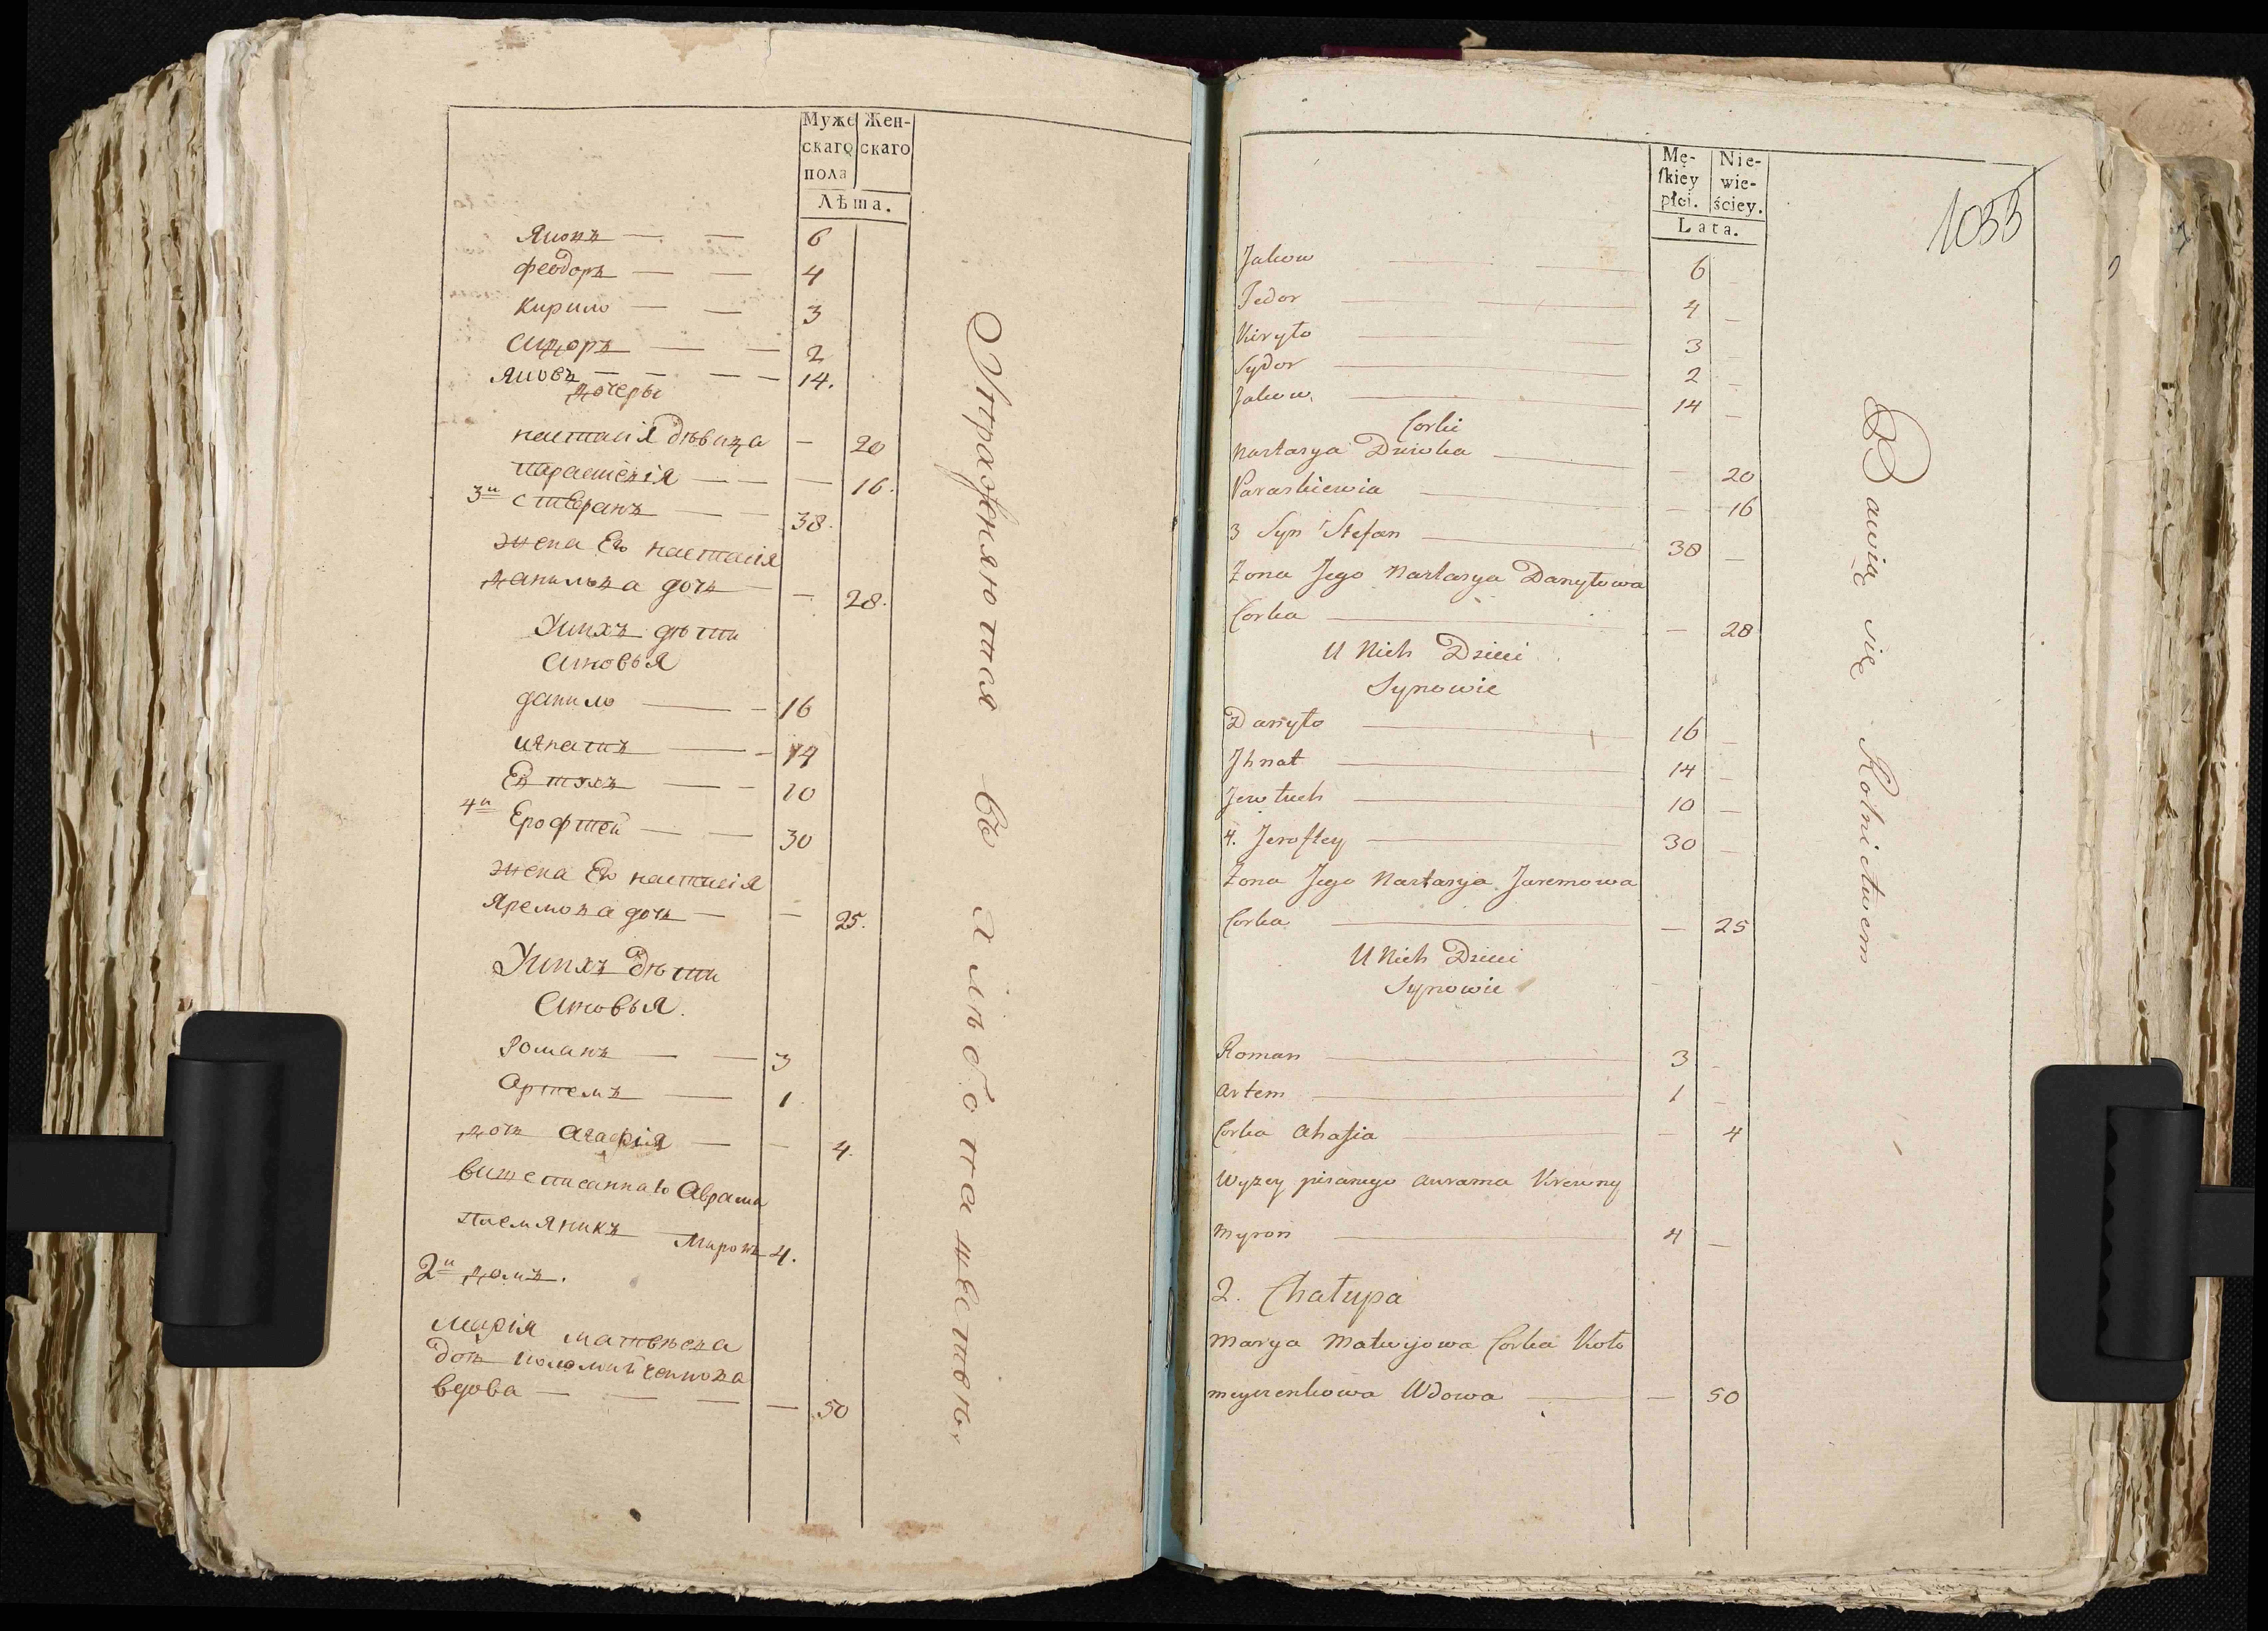 Муже Жен-
скаго скаго
пола
Лѣта.
Яковъ — — 6
Феодоръ — — 4
Кирило — — 3
Сидоръ — — 2
Яковъ — — — 14.
дочеры
настасія дѣвица — 20
Параскевія — — — 16.
3й Стефанъ — — 38.
жена Его настасія
данилова дочь — — 28.
У нихъ дѣти
Сыновья
данило — — 16
игнатъ — — 14
Евтухъ — — 10
4й Ерофтей — — 30
жена Его настасія
Яремова дочь — — 25.
У нихъ дѣти
Сыновья.
Романъ — — 3
Артемъ — 1
дочь Агафія — — 4.
вишеписаннаго Аврама
племяникъ — Миронъ 4.
2й домъ.
Марія матвѣева
дочь коломійченкова
вдова — — — — 50
Упражняются въ хлѣбопашествѣ.
Mę- Nie-
skiey wie-
płci. ściey.
Lata.
1033
Jakow — — 6 —
Fedor — — 4 —
Kiryło — 3
Sydor — 2 —
Jakow — 14 —
Corki
Nastasya Dziwka — — 20
Paraskiewia — — 16
3 Syn Stefan — 38 —
Żona Jego Nastasya Danyłowa
Corka — — 28
U Nich Dzieci
Synowie
Danyło — 16 —
Jhnat — 14 —
Jewtuch — 10 —
4. Jeroftey — 30 —
Żona Jego Nastasya Jaremowa
Corka — — 25
U Nich Dzieci
Synowie
Roman — 3 —
Artem — 1 —
Corka Ahafia — — 4
Wyzey pisanego Awrama Krewny
Myron — 4 —
2. Chałupa
Marya Matwijowa Corka Koło
meyczenkowa Wdowa — — 50
Bawią się Rolnictwem